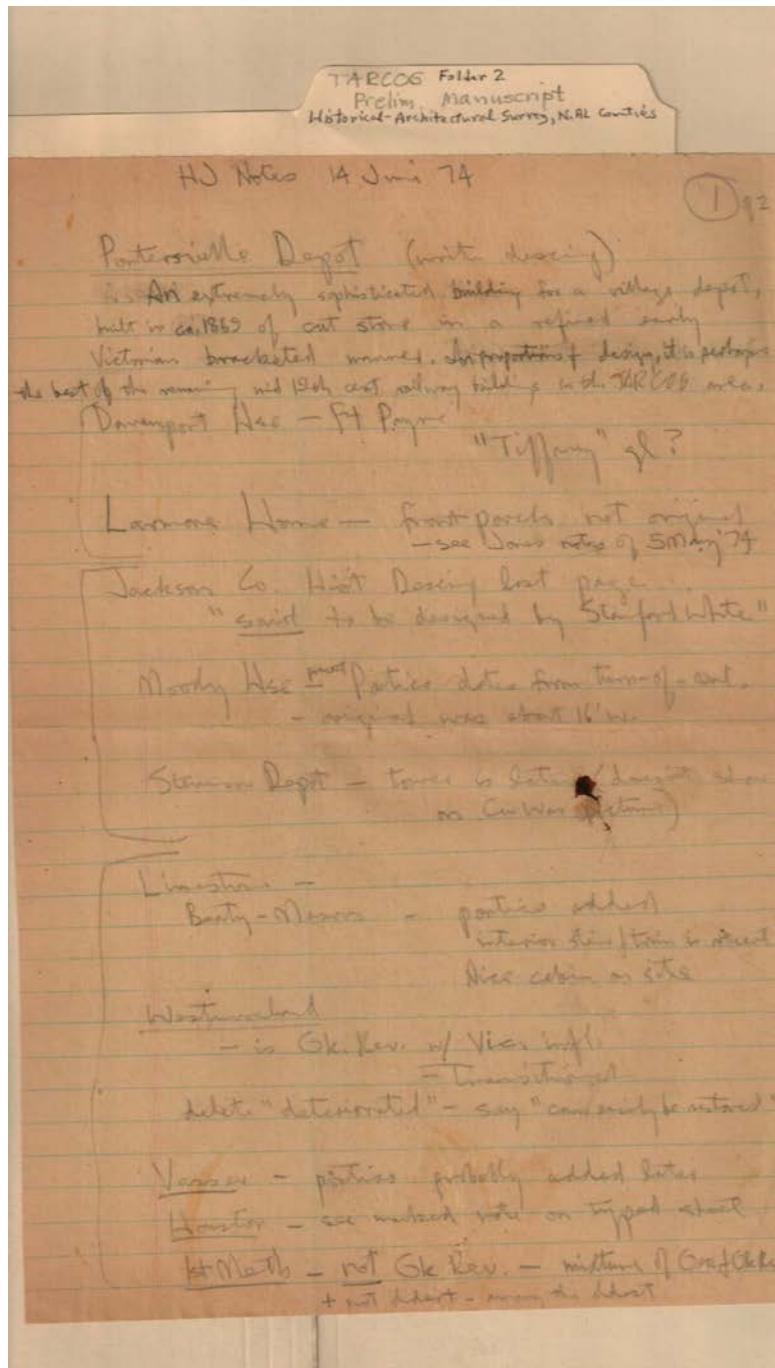 TARCOG Folder 2
Prelim. Manuscript
Historical-Architectural Survey, N. AL Counties
HJ Notes 14 June 74
1
Portersville Depot (write descrip)
is An extremely sophisticated building for a village depot,
built in ca. 1869 of cut stone in a refined early
Victorian bracketed manner. In proportion & design, it is perhaps
the best of the remaining mid 19th cent. railway buildings in the TARCOG area.
Davenport Hse — Ft Payne
"Tiffany" gl?
Larmore Home — front porch not original
— see Jones notes of 5 May '74
Jackson Co. Hist Descrip last page
"said to be designed by Stanford White"
Moody Hse — Portico dates from turn-of-cent.
- original was about 16' w.
Stevenson Depot — tower is later (doesn't show
on Civ War picture)
Limestone —
Beaty-Mason - portico added
interior stair/trim is recent
Nice cabin on site
Westmoreland
- is Gk. Rev. w/ Vict. infl.
= Transitional
delete "deteriorated" - say "can easily be restored"
Vasser - portico probably added later
Houston - see marked note on typed sheet
1st Meth - not Gk Rev. - mixture of Goth & Gk Rev
+ not oldest - among the oldest